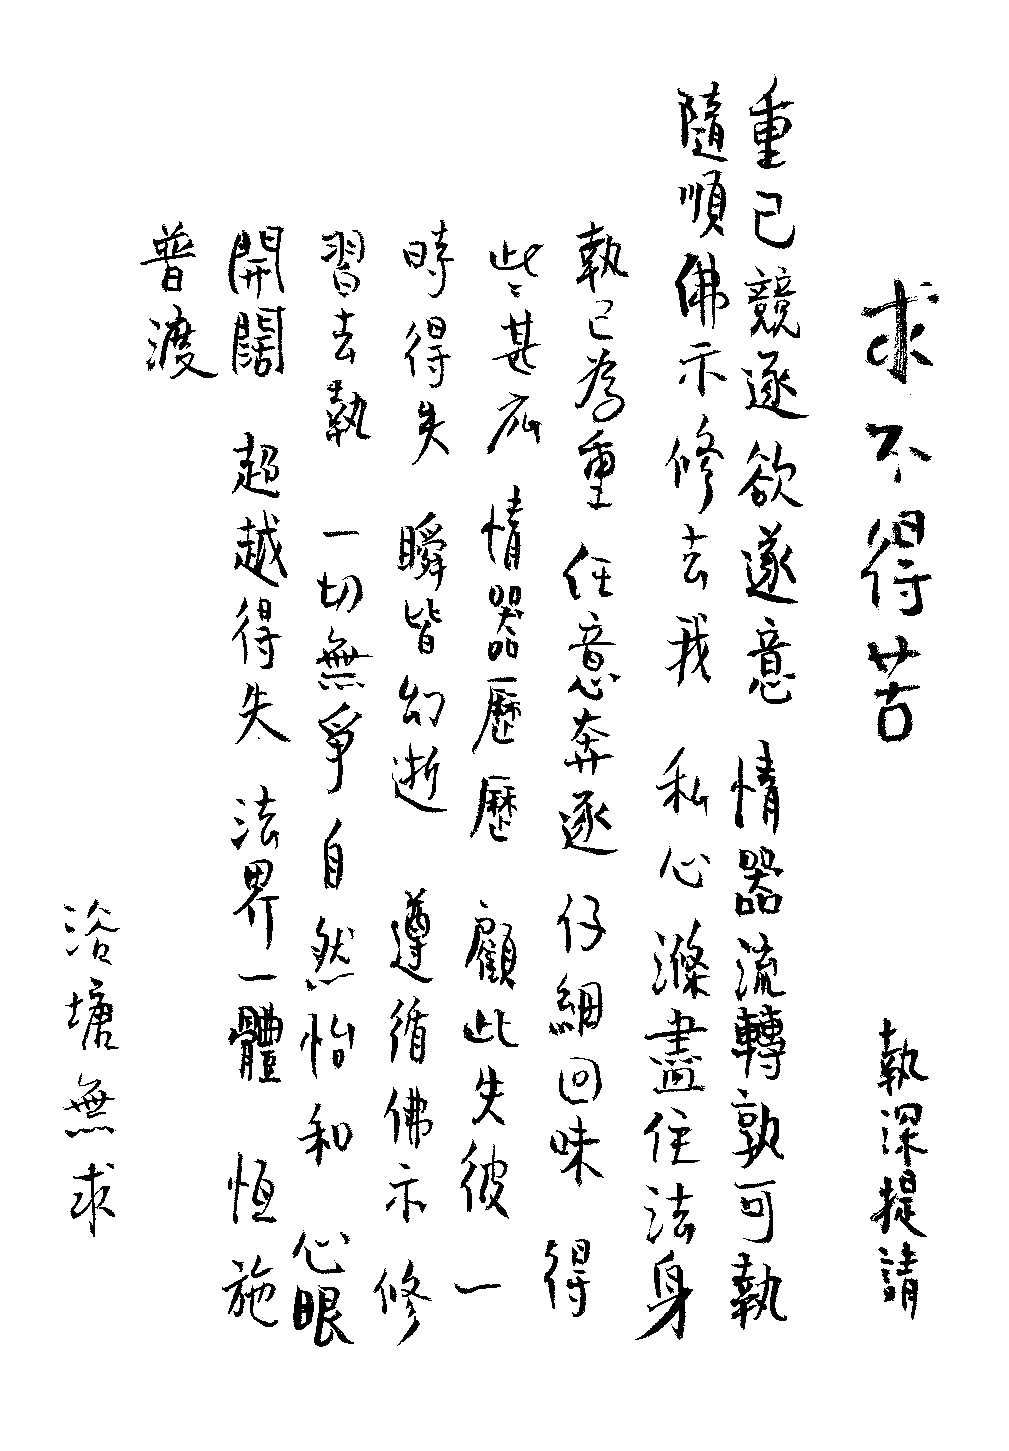 求不得苦 執深提請
重己競逐欲遂意 情器流轉孰可執
隨順佛示修去我 私心滌盡住法身
執己為重 任意奔逐 仔細回味 得
些甚庅 情器歷歷 顧此失彼 一
時得失 瞬皆幻逝 遵循佛示 修
習去執 一切無爭 自然怡和 心眼
開闊 超越得失 法界一體 恒施
普渡
浴塘無求